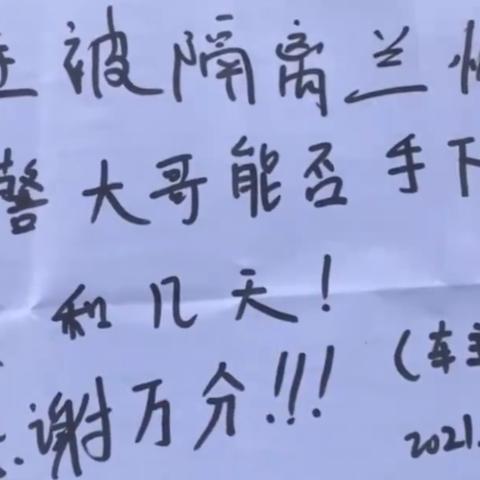 被隔离兰
警大哥能否手下
和几天!
谢万分!!!
(车主
2021.